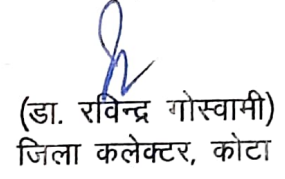 (डा. रविन्द्र गोस्वामी)
जिला कलेक्टर, कोटा